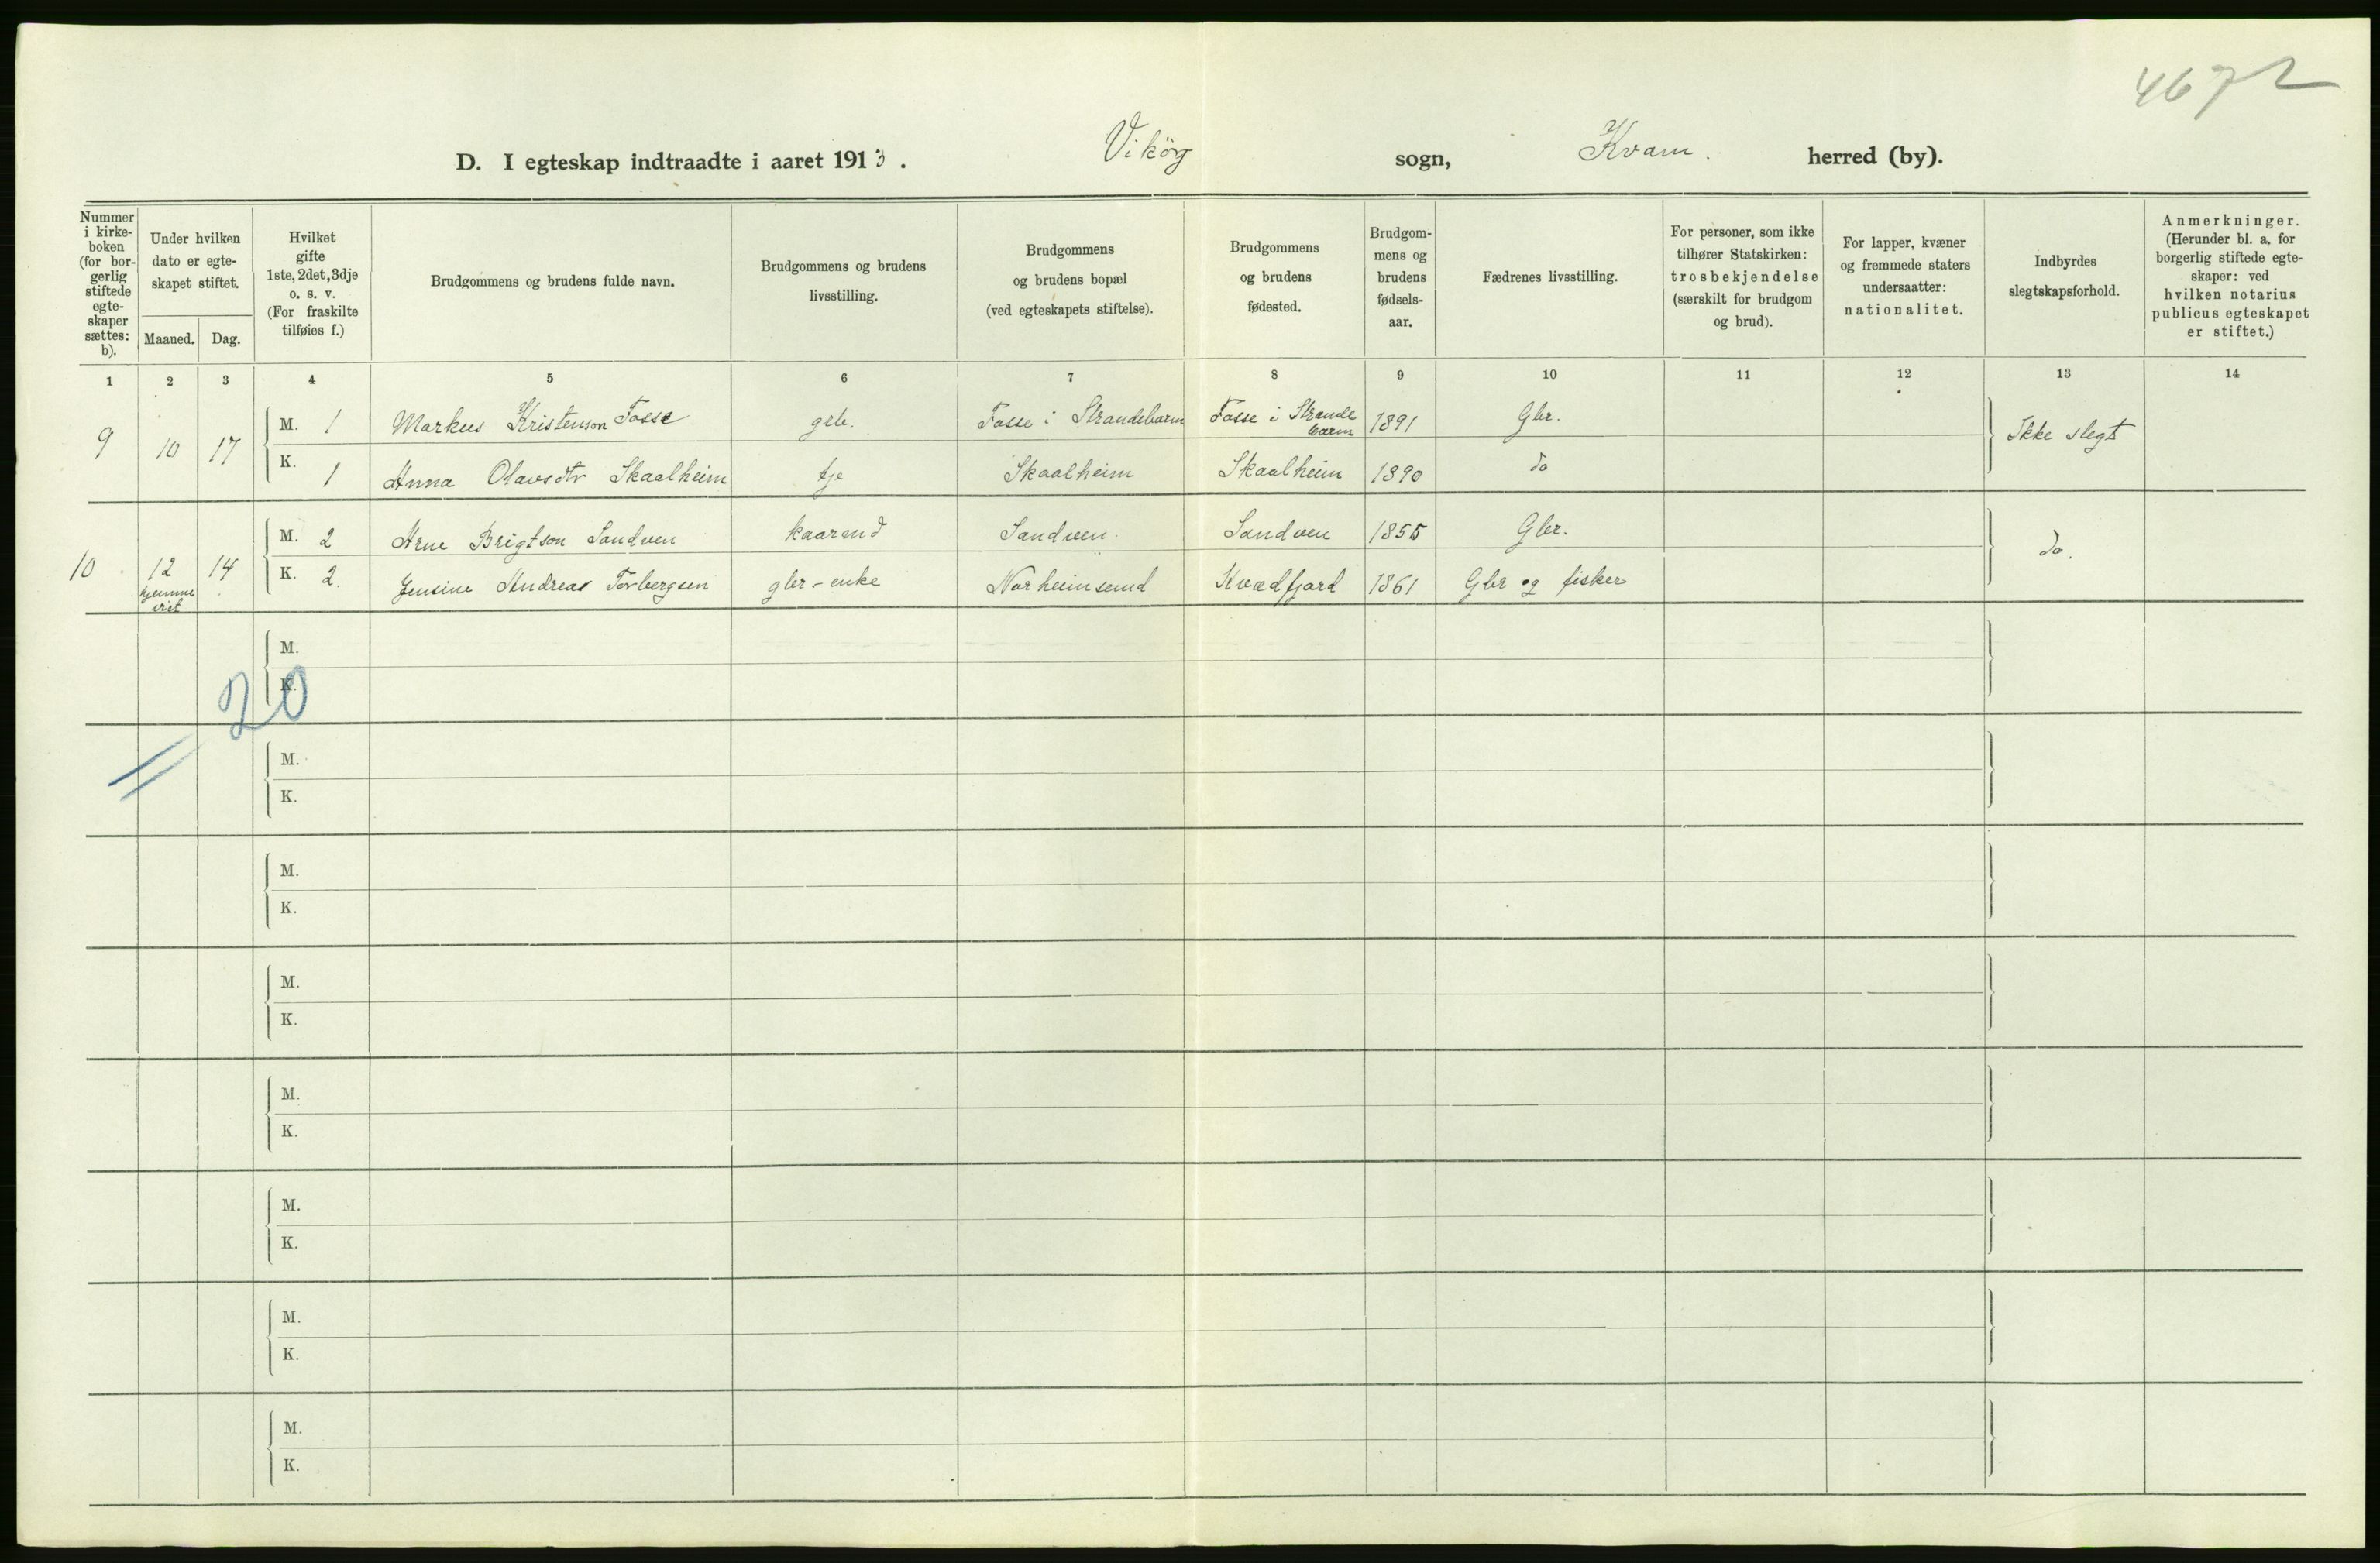 4672
D. I egteskap indtraadte i aaret 1913. Vikör sogn, Kvam. herred (by).
Nummer i kirke-boken (for bor-gerlig stiftede egte-skaper sættes: b).
Under hvilken dato er egte-skapet stiftet.
Maaned. Dag.
Hvilket gifte 1ste, 2det, 3dje o. s. v. (For fraskilte tilføies f.)
Brudgommens og brudens fulde navn.
Brudgommens og brudens livsstilling.
Brudgommens og brudens bopæl (ved egteskapets stiftelse).
Brudgommens og brudens fødested.
Brudgom-mens og brudens fødsels-aar.
Fædrenes livsstilling.
For personer, som ikke tilhører Statskirken: trosbekjendelse (særskilt for brudgom og brud).
For lapper, kvæner og fremmede staters undersaatter: nationalitet.
Indbyrdes slegtskapsforhold.
Anmerkninger. (Herunder bl. a. for borgerlig stiftede egte-skaper: ved hvilken notarius publicus egteskapet er stiftet.)
1 2 3 4 5 6 7 8 9 10 11 12 13 14
9 10 17 M. 1 Markus Kristenson Fosse grb. Fosse i Strandebarm Fosse i Strandebarm 1891 Gbr. Ikke slegt
K. 1 Anna Olavsdtr Skaalheim tje Skaalheim Skaalheim 1890 do
10 12 14 M. 2 Arne Brigtson Sandven kaarmd Sandven. Sandven 1855 Gbr. do.
hjemme viet K. 2. Jensine Andreas Torbergsen gbr-enke Norheimsund Kvædfjord 1861 Gbr og fisker
M.
K.
20
M.
K.
M.
K.
M.
K.
M.
K.
M.
K.
M.
K.
M.
K.